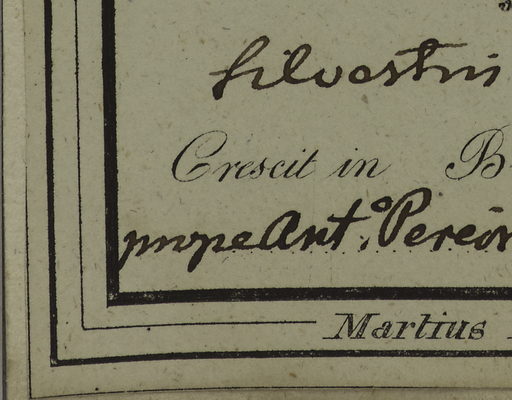 silvestris
Crescit in B
prope Ant.º Pereir
Martius